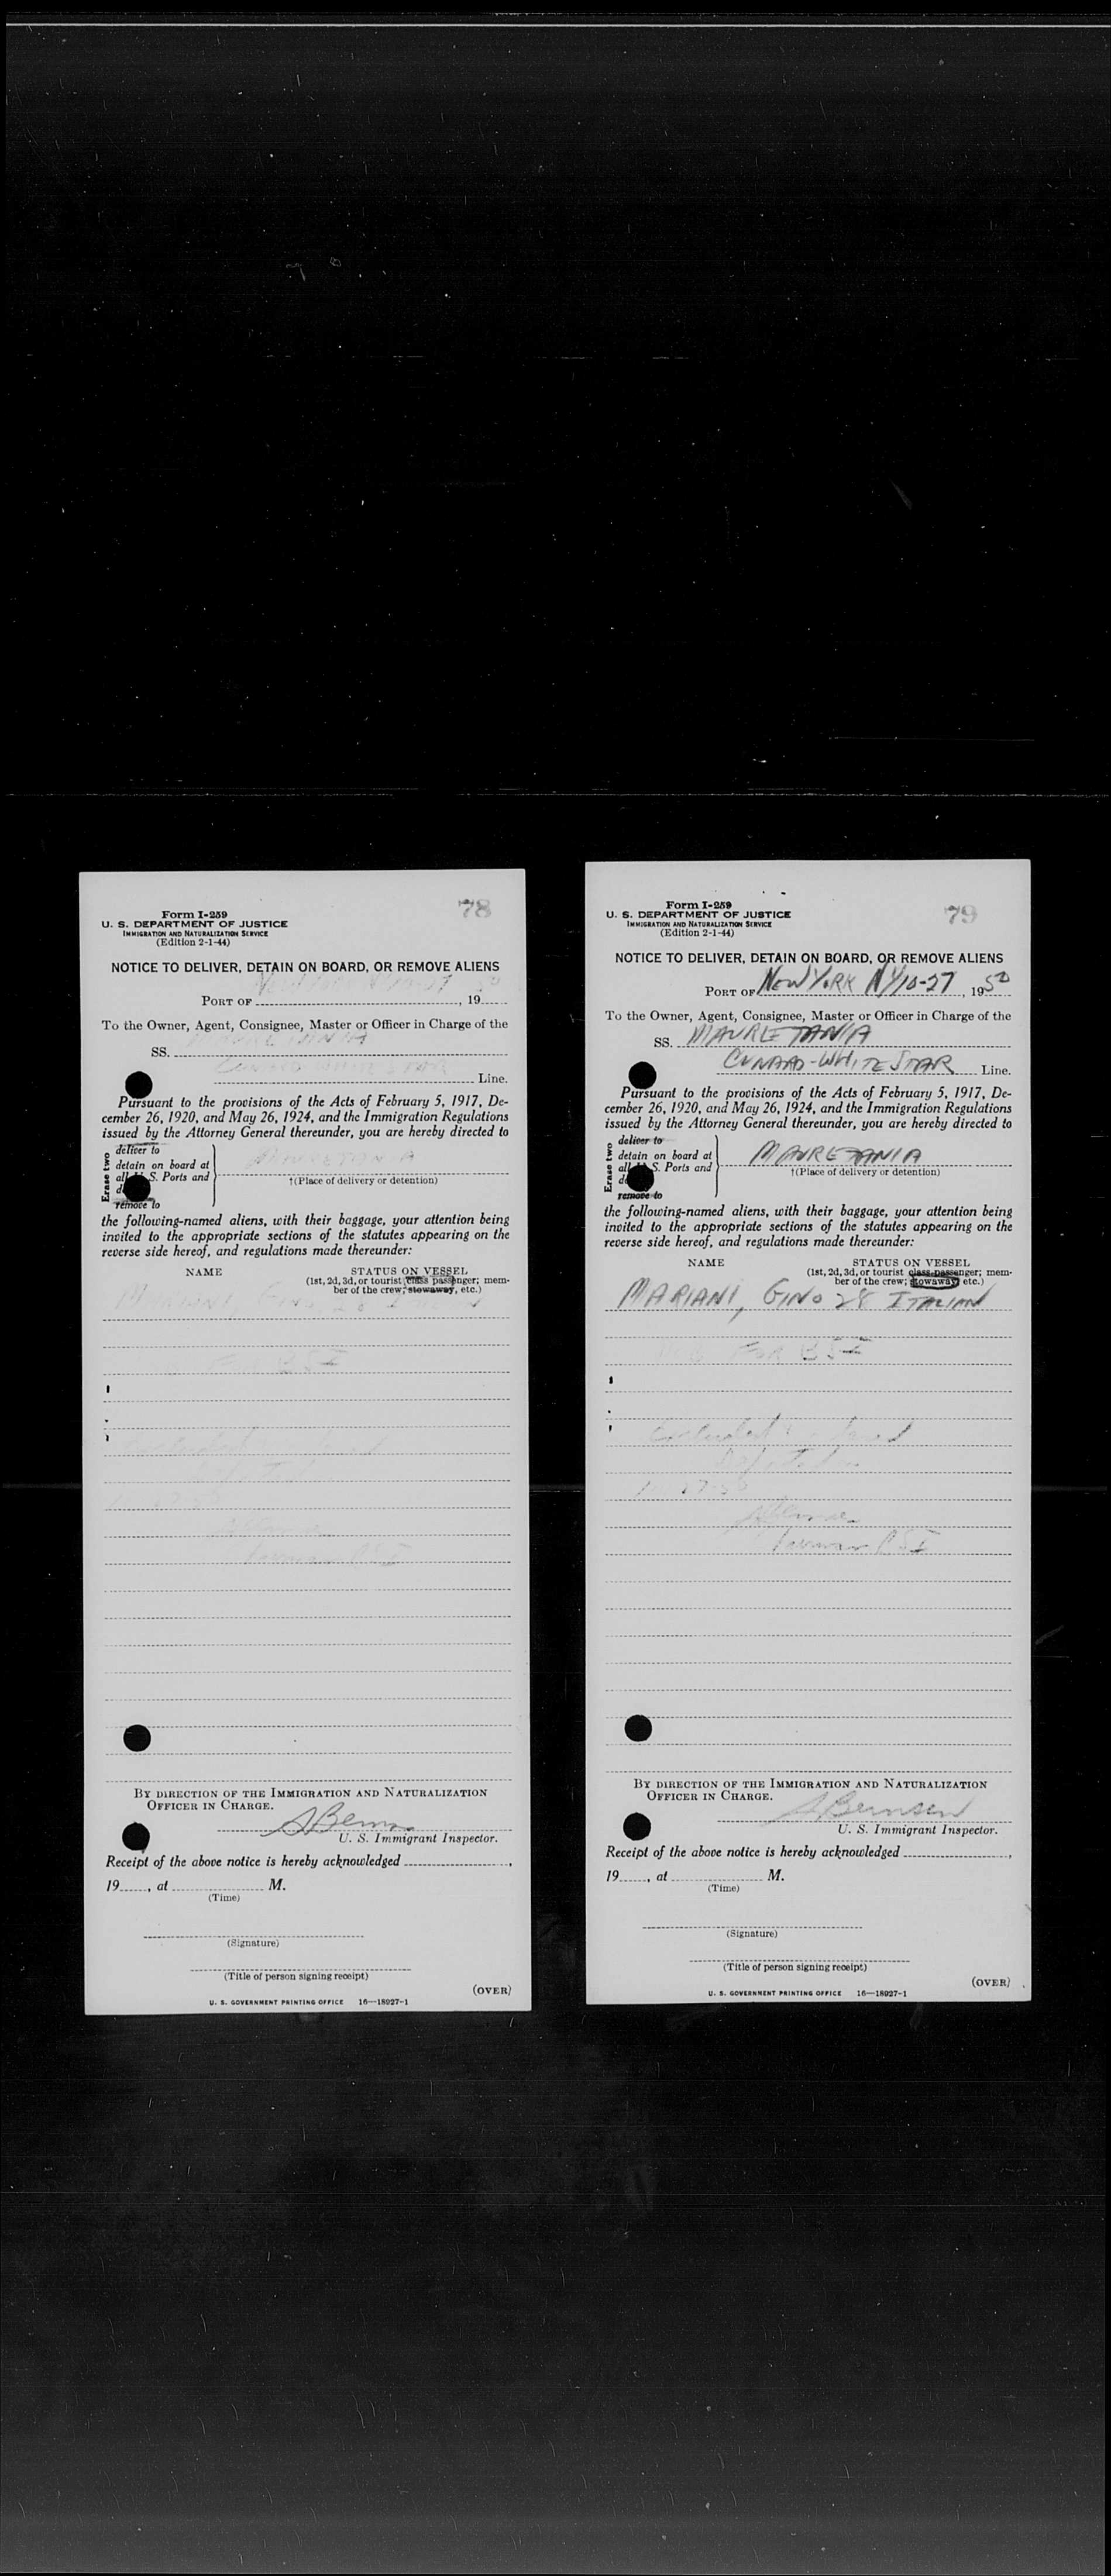 78
Form I-259
U. S. DEPARTMENT OF JUSTICE
IMMIGRATION AND NATURALIZATION SERVICE
(Edition 2-1-44)
NOTICE TO DELIVER, DETAIN ON BOARD, OR REMOVE ALIENS
PORT OF New York NY 10-27, 19 50
To the Owner, Agent, Consignee, Master or Officer in Charge of the
SS. MAURETANIA
CUNARD-WHITE STAR Line.
Pursuant to the provisions of the Acts of February 5, 1917, De-
cember 26, 1920, and May 26, 1924, and the Immigration Regulations
issued by the Attorney General thereunder, you are hereby directed to
Erase two
deliver to
detain on board at
all U. S. Ports and MAURETANIA
†(Place of delivery or detention)
remove to
the following-named aliens, with their baggage, your attention being
invited to the appropriate sections of the statutes appearing on the
reverse side hereof, and regulations made thereunder:
NAME STATUS ON VESSEL
(1st, 2d, 3d, or tourist class passenger; mem-
ber of the crew; stowaway, etc.)
FOR BSI
BSI
BY DIRECTION OF THE IMMIGRATION AND NATURALIZATION
OFFICER IN CHARGE.
U. S. Immigrant Inspector.
Receipt of the above notice is hereby acknowledged
19, at M.
(Time)
(Signature)
(Title of person signing receipt)
(OVER)
U. S. GOVERNMENT PRINTING OFFICE 16—18927-1
79
Form I-259
U. S. DEPARTMENT OF JUSTICE
IMMIGRATION AND NATURALIZATION SERVICE
(Edition 2-1-44)
NOTICE TO DELIVER, DETAIN ON BOARD, OR REMOVE ALIENS
PORT OF NEW YORK NY 10-27, 1950
To the Owner, Agent, Consignee, Master or Officer in Charge of the
SS. MAURETANIA
CUNARD-WHITE STAR Line.
Pursuant to the provisions of the Acts of February 5, 1917, De-
cember 26, 1920, and May 26, 1924, and the Immigration Regulations
issued by the Attorney General thereunder, you are hereby directed to
Erase two
deliver to
detain on board at
all U. S. Ports and MAURETANIA
†(Place of delivery or detention)
remove to
the following-named aliens, with their baggage, your attention being
invited to the appropriate sections of the statutes appearing on the
reverse side hereof, and regulations made thereunder:
NAME STATUS ON VESSEL
(1st, 2d, 3d, or tourist class passenger; mem-
ber of the crew; stowaway, etc.)
MARIANI, GINO 28 ITALIAN
FOR BSI
Excluded
27-50
BSI
BY DIRECTION OF THE IMMIGRATION AND NATURALIZATION
OFFICER IN CHARGE.
U. S. Immigrant Inspector.
Receipt of the above notice is hereby acknowledged
19, at M.
(Time)
(Signature)
(Title of person signing receipt)
(OVER)
U. S. GOVERNMENT PRINTING OFFICE 16—18927-1